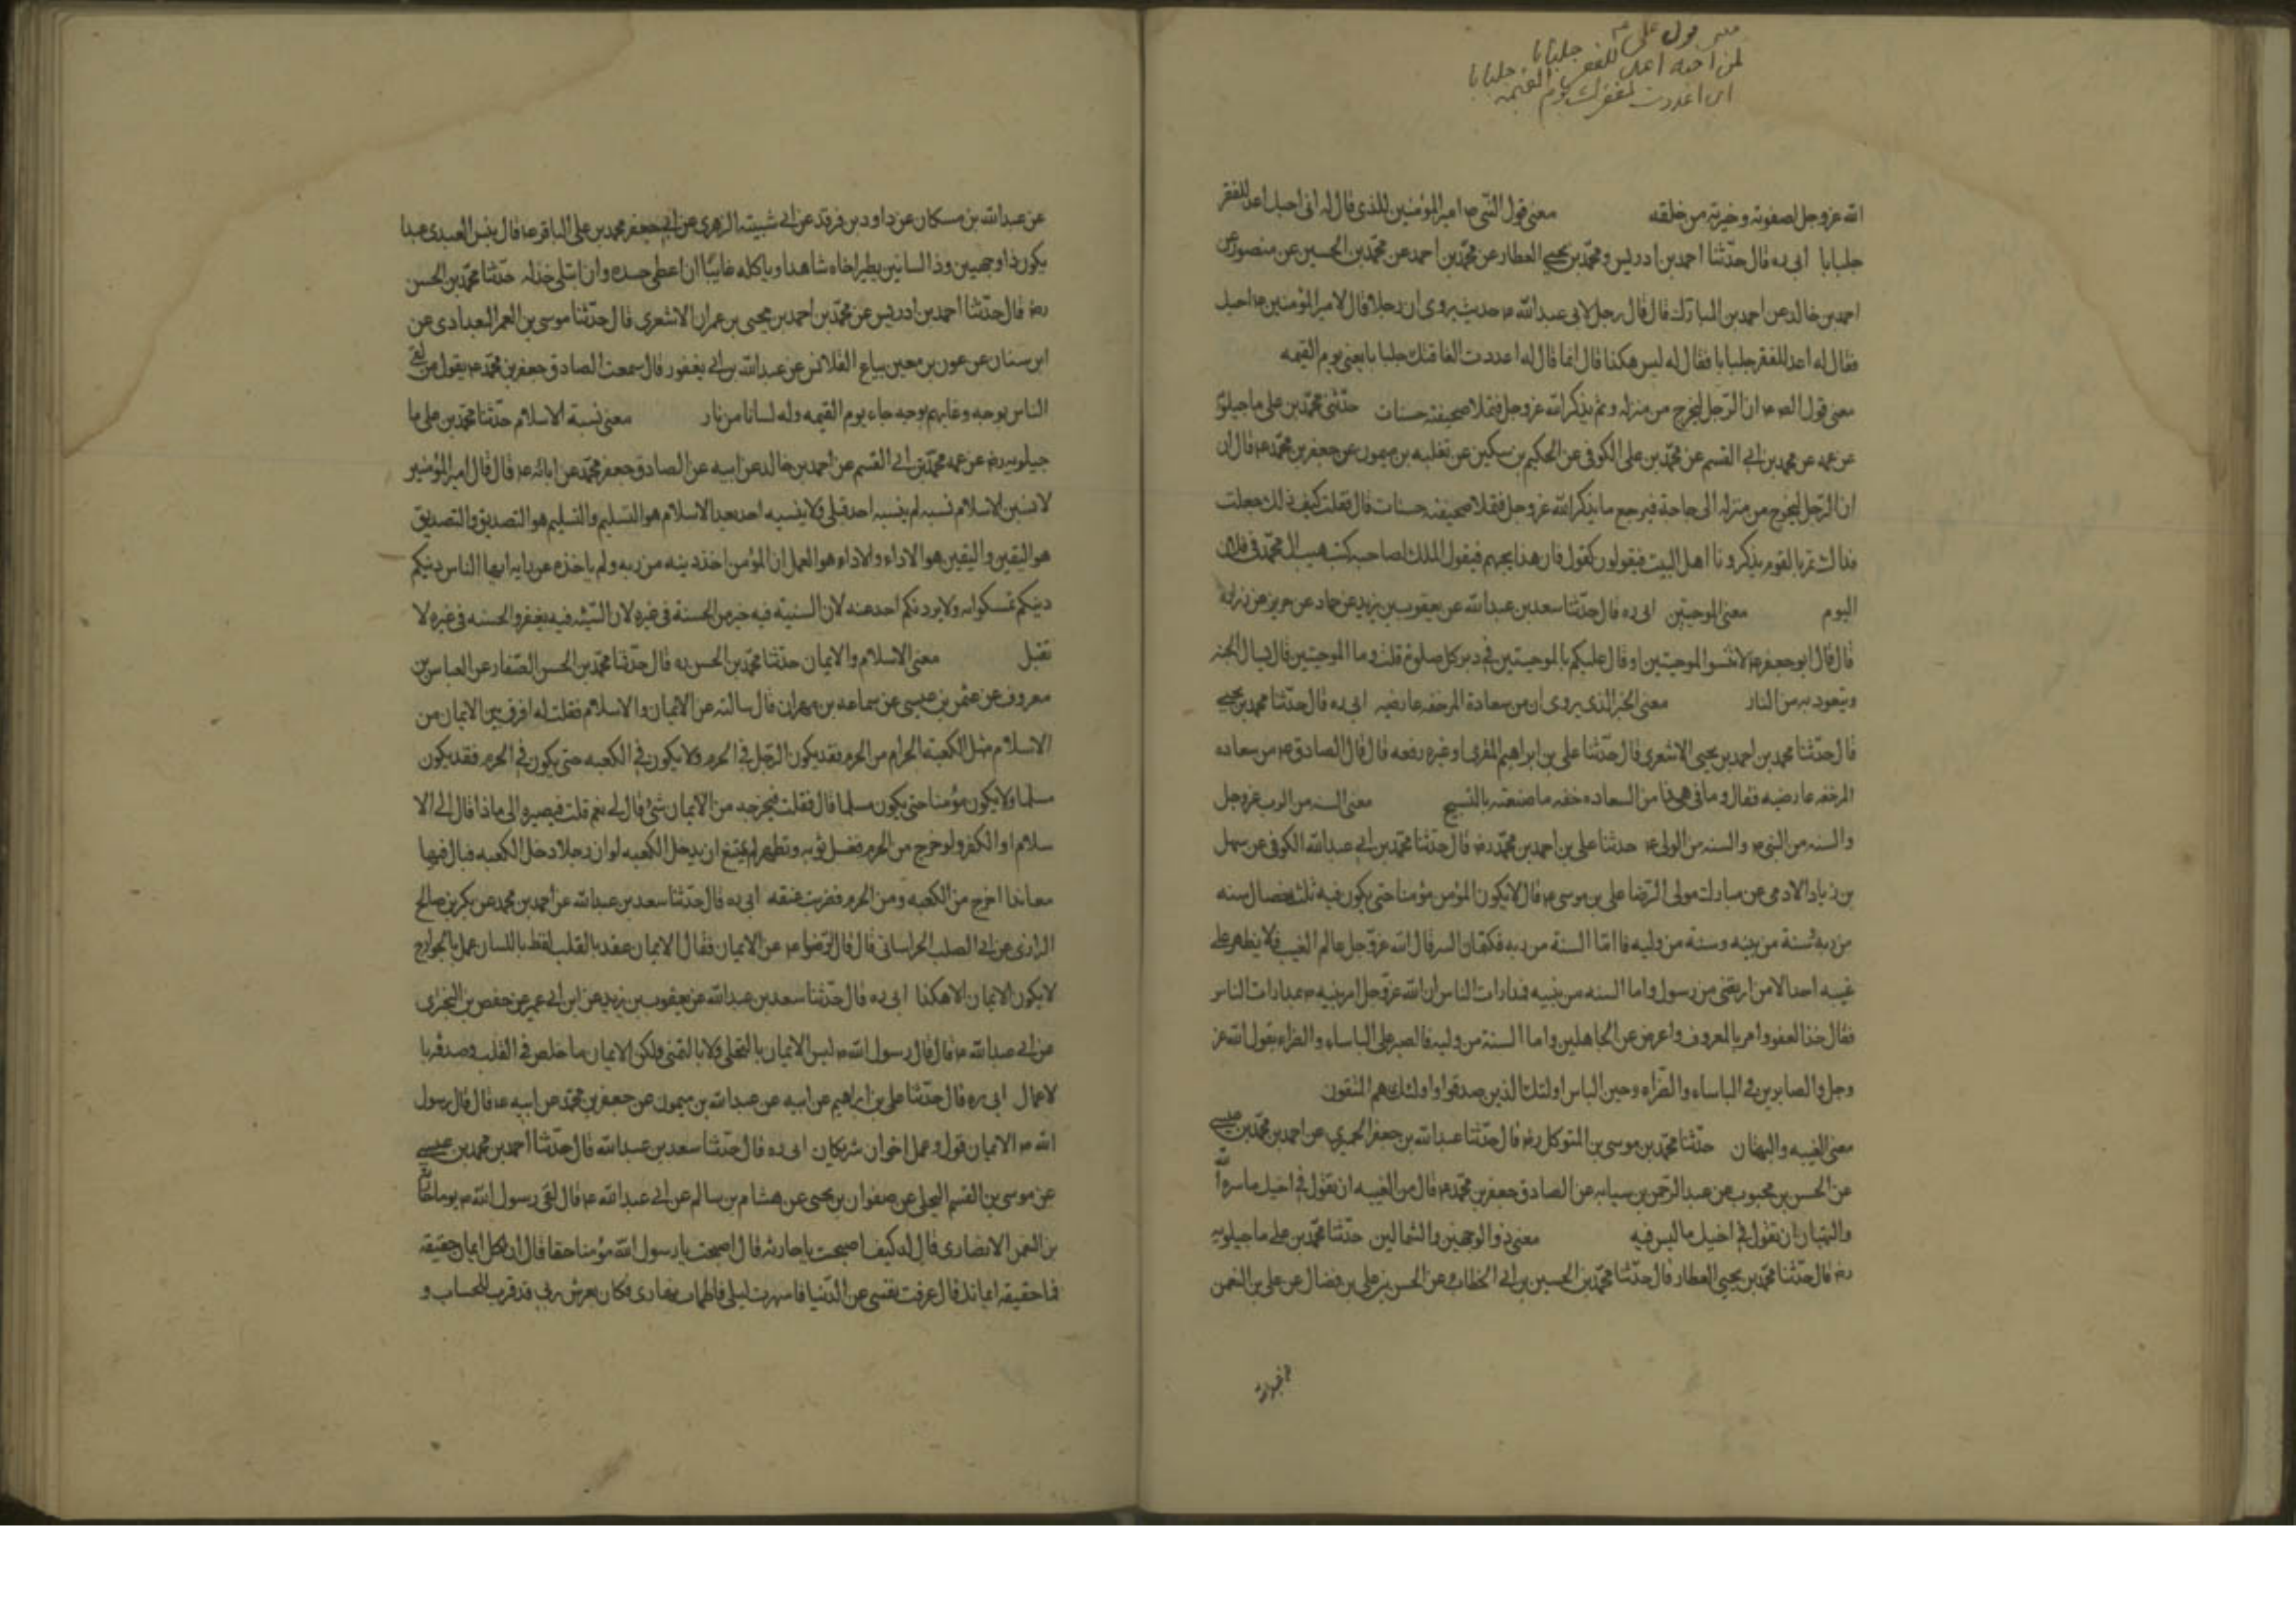 الله عز وجل لصفوته وخيرته من خلقه معنى قول النبى ص امير المؤمنين للذى قال له انى احبك اعد للفقر
جلبابا ابى ره قال حدثنا احمد بن ادريس ومحمد بن يحيى العطار عن محمد بن احمد عن محمد بن الحسين عن منصور عن
احمد بن خالد عن احمد بن المبارك قال قال رجل لابى عبدالله ع حديث يروى ان رجلا قال لامير المؤمنين ع احبك
فقال له اعد للفقر جلبابا فقال له ليس هكذا قال انما قال له اعددت لفاقتك جلبابا يعنى يوم القيمه
معنى قول الص ع ان الرجل ليخرج من منزله ولم يذكر الله عز وجل فتملا صحيفته حسنات حدثنى محمد بن على ماجيلوي
عن عمه عن محمد بن ابى القسم عن محمد بن على الكوفى عن الحكيم بن سكين عن ثعلبه بن ميمون عن جعفر بن محمد ع قال ان
ان الرجل ليخرج من منزله الى حاجة فيرجع ما يذكر الله عز وجل فتملا صحيفته حسنات قال فقلت كيف ذلك جعلت
فداك قال يمر بالقوم يذكرونا اهل البيت فيقولون كفوا فان هذا يحبهم فيقول الملك لصاحبه اكتب هيب ال محمد فى فلان
اليوم معنى الموجبتين ابى ره قال حدثنا سعد بن عبدالله عن يعقوب بن يزيد عن حماد عن حريز عن زراره
قال قال ابو جعفر ع لا تنسوا الموجبتين او قال عليكم بالموجبتين فى دبر كل صلوة قلت وما الموجبتين قال تسال الجنه
وتعوذ به من النار معنى الخبر الذى يروى ان من سعادة المر خفه عارضيه ابى ره قال حدثنا محمد بن يحيى
قال حدثنا محمد بن احمد بن يحيى الاشعرى قال حدثنا على بن ابراهيم المقرى او غيره رفعه قال قال الصادق ع من سعاده
المر خفه عارضيه فقال وما فى هذا من السعاده خفه ماضغيه بالتسبيح معنى السنه من الرب عز وجل
والسنه من النبى ص والسنه من الولى ع حدثنا على بن احمد بن محمد رض قال حدثنا محمد بن ابى عبدالله الكوفى عن سهل
بن زياد الادمى عن مبارك مولى الرضا على بن موسى ع قال لا يكون المؤمن مؤمنا حتى يكون فيه ثلث خصال سنه
من ربه وسنة من نبيه وسنة من وليه فاما السنة من ربه فكتمان السر قال الله عز وجل عالم الغيب فلا يظهر على
غيبه احدا الا من ارتضى من رسول واما السنه من نبيه فمدارات الناس ان الله عز وجل امر نبيه ص بمدارات الناس
فقال خذ العفو وامر بالمعروف واعرض عن الجاهلين واما السنة من وليه فالصبر على الباساء والضراء يقول الله عز
وجل والصابرين فى الباساء والضراء وحين الباس اولئك الذين صدقوا واولئك هم المتقون
معنى الغيبه والبهتان حدثنا محمد بن موسى بن المتوكل رض قال حدثنا عبدالله بن جعفر الحميرى عن احمد بن محمد بن عيسى
عن الحسن بن محبوب عن عبد الرحمن بن سيابه عن الصادق جعفر بن محمد ع قال من الغيبه ان تقول فى اخيك ما ستره الله
والبهتان ان تقول فى اخيك ما ليس فيه معنى ذو الوجهين والشمالين حدثنا محمد بن على ماجيلويه
رض قال حدثنا محمد بن يحيى العطار قال حدثنا محمد بن الحسين بن ابى الخطاب عن الحسن بن على بن فضال عن على بن النعمن
عن عبدالله بن مسكان عن داود بن فرقد عن ابى شيبته الزهرى عن ابى جعفر محمد بن على الباقر ع قال بئس العبد عبدا
يكون ذا وجهين وذا لسانين يطير اخاه شاهدا وياكله غايبا ان اعطى حسده وان ابتلى خذله حدثنا محمد بن الحسن
رض قال حدثنا احمد بن ادريس عن محمد بن احمد بن يحيى بن عمران الاشعرى قال حدثنا موسى بن العمر البعدادى عن
ابن سنان عن عون بن معين بياع القلانس عن عبدالله بن ابى يعفور قال سمعت الصادق جعفر بن محمد ع يقول من لقى
الناس بوجه وعابهم بوجه جاء يوم القيمه وله لسانا من نار معنى نسبة الاسلام حدثنا محمد بن على ما
جيلويه رض عن عمه محمد بن ابى القسم عن احمد بن خالد عن ابيه عن الصادق جعفر بن محمد عن ابائه ع قال قال امير المؤمنين
لانسبن الاسلام نسبه لم ينسبه احد قبلى ولا ينسبه احد بعد الاسلام هو التسليم والتسليم هو التصديق والتصديق
هو اليقين واليقين هو الاداء والاداء هو العمل ان المؤمن اخذ دينه من ربه ولم ياخذه عن رايه ايها الناس دينكم
دينكم تمسكوا به ولا يردنكم احد عنه لان السيئه فيه خير من الحسنة فى غيره لان السيئه فيه يغفر والحسنه فى غيره لا
تقبل معنى الاسلام والايمان حدثنا محمد بن الحسن ره قال حدثنا محمد بن الحسن الصفار عن العباس بن
معروف عن عثمن بن عيسى عن سماعه بن مهران قال سالته عن الايمان والاسلام فقلت له افرق بين الايمان من
الاسلام مثل الكعبه الحرام من الحرم فقد يكون الرجل فى الحرم ولا يكون فى الكعبه حتى يكون فى الحرم فقد يكون
مسلما ولا يكون مؤمنا حتى يكون مسلما قال فقلت فيخرجه من الايمان شئ قال لى نعم قلت فيصيره الى ماذا قال الى الا
سلام او الكفر ولو خرج من الحرم فغسل ثوبه وتطهر لم يمتنع ان يدخل الكعبه لو ان رجلا دخل الكعبه فبال فيها
معاندا اخرج من الكعبه ومن الحرم فضربت عنقه ابى ره قال حدثنا سعد بن عبدالله عن احمد بن محمد عن بكر بن صالح
الرازى عن ابى الصلت الخراسانى قال قال الرضوا ع عن الايمان فقال الايمان عقد بالقلب لفظ باللسان عمل بالجوارح
لا يكون الايمان الا هكذا ابى ره قال حدثنا سعد بن عبدالله عن يعقوب بن يزيد عن ابن ابى عمير عن حفص بن البخترى
عن ابى عبدالله ع قال قال رسول الله ص ليس الايمان بالتحلى ولا بالتمنى ولكن الايمان ما خلص فى القلب وصدقه با
لاعمال ابى ره قال حدثنا على بن ابراهيم عن ابيه عن عبدالله بن ميمون عن جعفر بن محمد عن ابيه ع قال قال رسول
الله ص الايمان قول وعمل اخوان شريكان ابى ره قال حدثنا سعد بن عبدالله قال حدثنا احمد بن محمد بن عيسى
عن موسى بن القسم البجلى عن صفوان بن يحيى عن هشام بن سالم عن ابى عبدالله ع قال لقى رسول الله ص يوما حارثة
بن النعمن الانصارى قال له كيف اصبحت يا حارثه قال اصبحت يا رسول الله مؤمنا حقا قال ان لكل ايمان حقيقه
فما حقيقه ايمانك قال عرفت نفسى عن الدنيا فاسهرت ليلى فاظمات نهارى فكان بعرش ربى قد قرب للحساب و